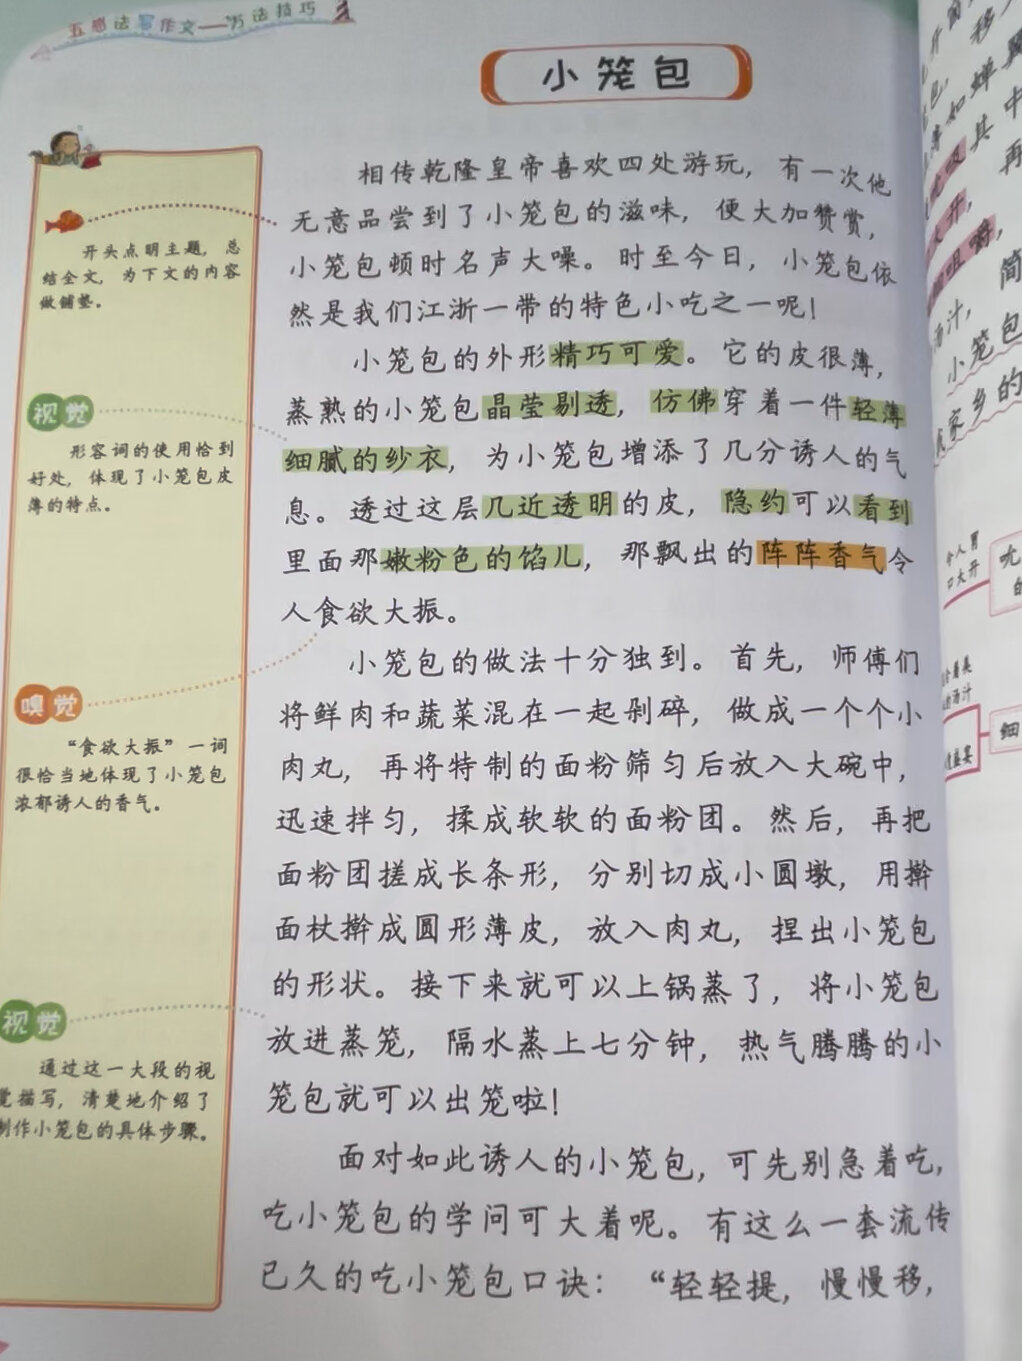 五感法写作文——方法技巧
小笼包
相传乾隆皇帝喜欢四处游玩，有一次他
无意品尝到了小笼包的滋味，便大加赞赏，
小笼包顿时名声大噪。时至今日，小笼包依
然是我们江浙一带的特色小吃之一呢！
小笼包的外形精巧可爱。它的皮很薄，
蒸熟的小笼包晶莹剔透，仿佛穿着一件轻薄
细腻的纱衣，为小笼包增添了几分诱人的气
息。透过这层几近透明的皮，隐约可以看到
里面那嫩粉色的馅儿，那飘出的阵阵香气令
人食欲大振。
小笼包的做法十分独到。首先，师傅们
将鲜肉和蔬菜混在一起剁碎，做成一个个小
肉丸，再将特制的面粉筛匀后放入大碗中，
迅速拌匀，揉成软软的面粉团。然后，再把
面粉团搓成长条形，分别切成小圆墩，用擀
面杖擀成圆形薄皮，放入肉丸，捏出小笼包
的形状。接下来就可以上锅蒸了，将小笼包
放进蒸笼，隔水蒸上七分钟，热气腾腾的小
笼包就可以出笼啦！
面对如此诱人的小笼包，可先别急着吃，
吃小笼包的学问可大着呢。有这么一套流传
已久的吃小笼包口诀：“轻轻提，慢慢移，
开头点明主题，总
结全文，为下文的内容
做铺垫。
视觉
形容词的使用恰到
好处，体现了小笼包皮
薄的特点。
嗅觉
“食欲大振”一词
很恰当地体现了小笼包
浓郁诱人的香气。
视觉
通过这一大段的视
觉描写，清楚地介绍了
制作小笼包的具体步骤。
移
如蝉翼
其中
再
大开，
咀嚼，
汤汁，简
小笼包
家乡的
令人胃
口大开
的汤汁
细